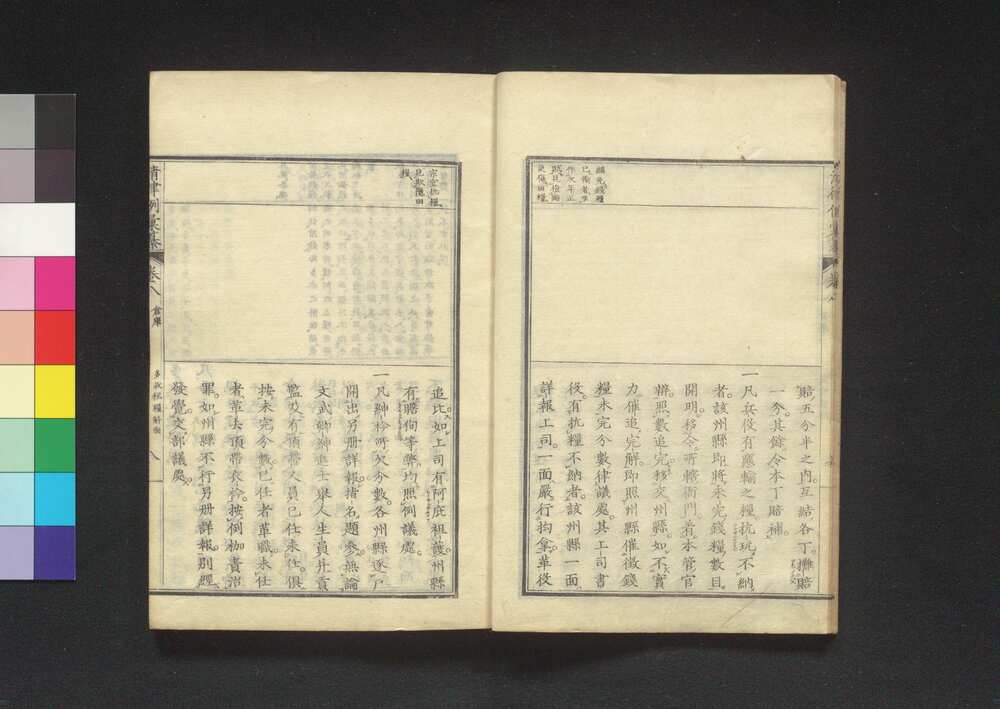 賠五分半之内互結各丁攤賠
一分其餘令本丁賠補
一凡兵役有應輸之糧抗玩不納
者該州縣即將未完錢糧數目
開明移令所轄衙門着本管官
辨照數追完移交州縣如不實
力催追完解即照州縣催徵錢
糧未完分數律議處其上司書
役有抗糧不納者該州縣一面
詳報上司一面嚴行拘拿革役
宗室抗糧
追比如上司有阿庇袒護州縣
有瞻徇等弊均照例議處
一凡紳衿所欠分數各州縣逐戶
開出另册詳報指名題參無論
文武鄉紳進士舉人生員並貢
監及有頂帶人員已仕未仕俱
按未完分數已仕者革職未仕
者革去頂帶衣衿按例枷責治
罪如州縣不行另册詳報别經
發覺交部議處
清律例彙纂
卷八
倉庫
八